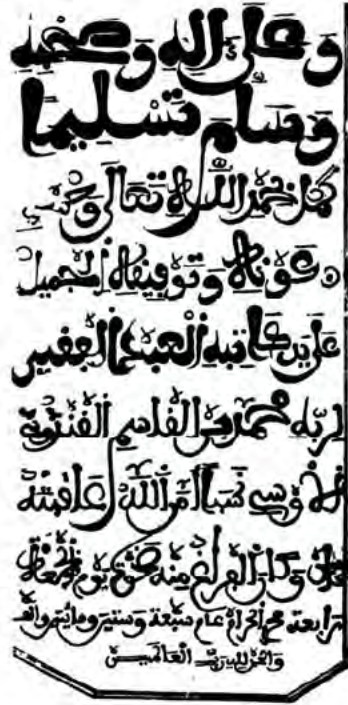 وعلى ءاله وصحبه
وسلم تسليما
كمل بحمد الله تعالى وحسن
عونه وتوفيقه الجميل
على يد كاتبه العبد الفقير
لربه محمد بن القاسم القندوسي
الله عاقبته
وكان الفراغ منه ضحوة يوم
رابعة محرم الحرام عام سبعة وستين ومائتين وألف
والحمد لله رب العالمين